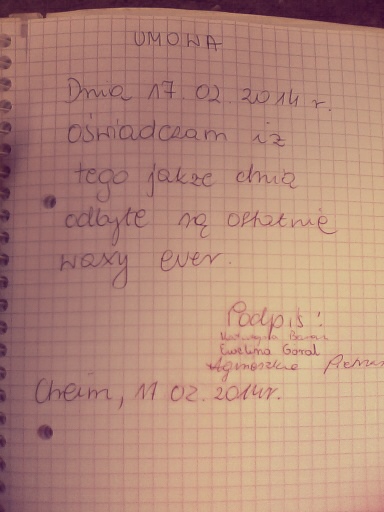 UMOWA
Dnia 17.02.2014 r.
oświadczam iż
tego jakże dnia
odbyte są ostatnie
waxy ever.
Podpis:
Ewelina Góral
Agnieszka
Chełm, 11 02.2014r.